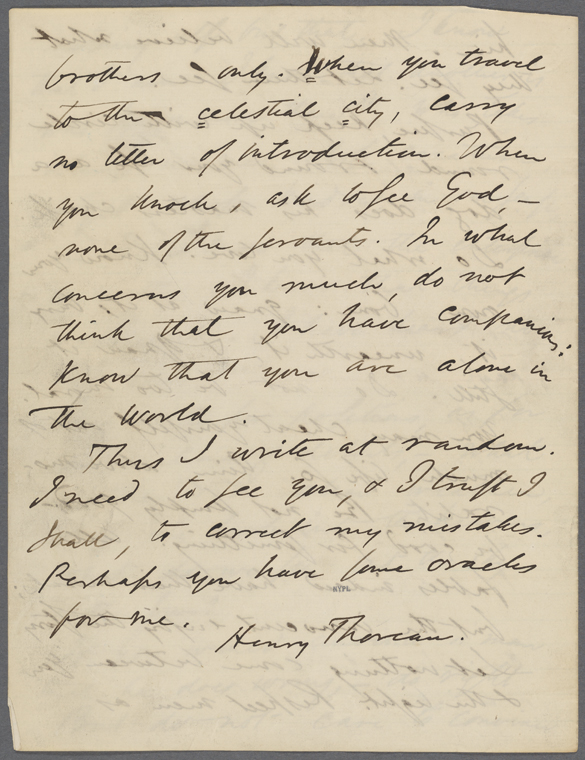 brothers only. When you travel
to the celestial city, carry
no letter of introduction. When
you knock, ask to see God,—
none of the servants. In what
concerns you much, do not
think that you have companions:
know that you are alone in
the world.
Thus I write at random.
I need to see you, & I trust I
shall, to correct my mistakes.
Perhaps you have some oracles
NYPL
for me.
Henry Thoreau.